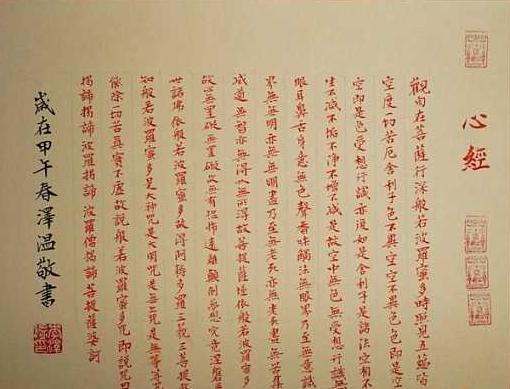 心經
觀自在菩薩行深般若波羅蜜多時照見五蘊皆
空度一切苦厄舍利子色不異空空不異色色即是
空即是色受想行識亦復如是舍利子是諸法空相不
生不滅不垢不淨不增不減是故空中無色無受想行識無
眼耳鼻舌身意無色聲香味觸法無眼界乃至無意識
界無無明亦無無明盡乃至無老死亦無老死盡無苦集
滅道無智亦無得以無所得故菩提薩埵依般若波羅蜜多
故心無罣礙無罣礙故無有恐怖遠離顛倒夢想究竟涅槃
世諸佛依般若波羅蜜多故得阿耨多羅三藐三菩提
知般若波羅蜜多是大神咒是大明咒是無上咒是無等等
能除一切苦真實不虛故說般若波羅蜜多咒即說咒曰
揭諦揭諦波羅揭諦波羅僧揭諦菩提薩婆訶
歲在甲午春澤温敬書